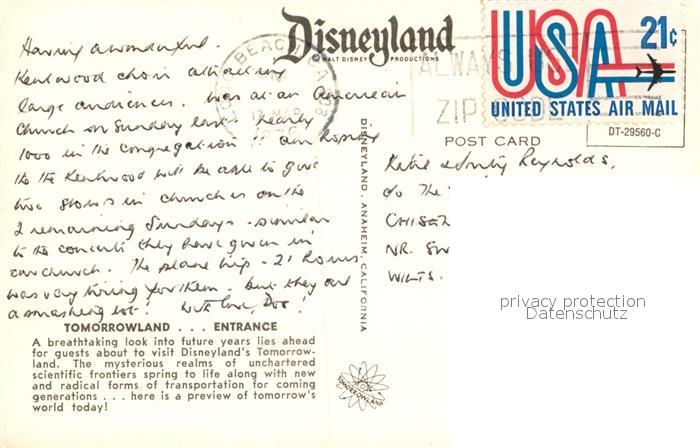 Disneyland
© WALT DISNEY PRODUCTIONS
BEACH CA
17 MAR
ALWAYS
ZIP
USA 21c
UNITED STATES AIR MAIL
POST CARD
DT-29560-C
Having a wonderful
Kentwood choir attracting
large audiences. Was at an American
Church on Sunday last - nearly
1000 in the congregation. I am hoping
the Kentwood will be able to give
two shows in churches on the
2 remaining Sundays - similar
to the concerts they have given in
our church. The plane trip - 21 hours
was very tiring for them. But they are
a smashing lot! With love,
Katie Reynolds,
c/o The
CHISE
NR. SW
WILTS.
DISNEYLAND, ANAHEIM, CALIFORNIA
TOMORROWLAND . . . ENTRANCE
A breathtaking look into future years lies ahead
for guests about to visit Disneyland's Tomorrow-
land. The mysterious realms of unchartered
scientific frontiers spring to life along with new
and radical forms of transportation for coming
generations . . . here is a preview of tomorrow's
world today!
TOMORROWLAND
privacy protection
Datenschutz